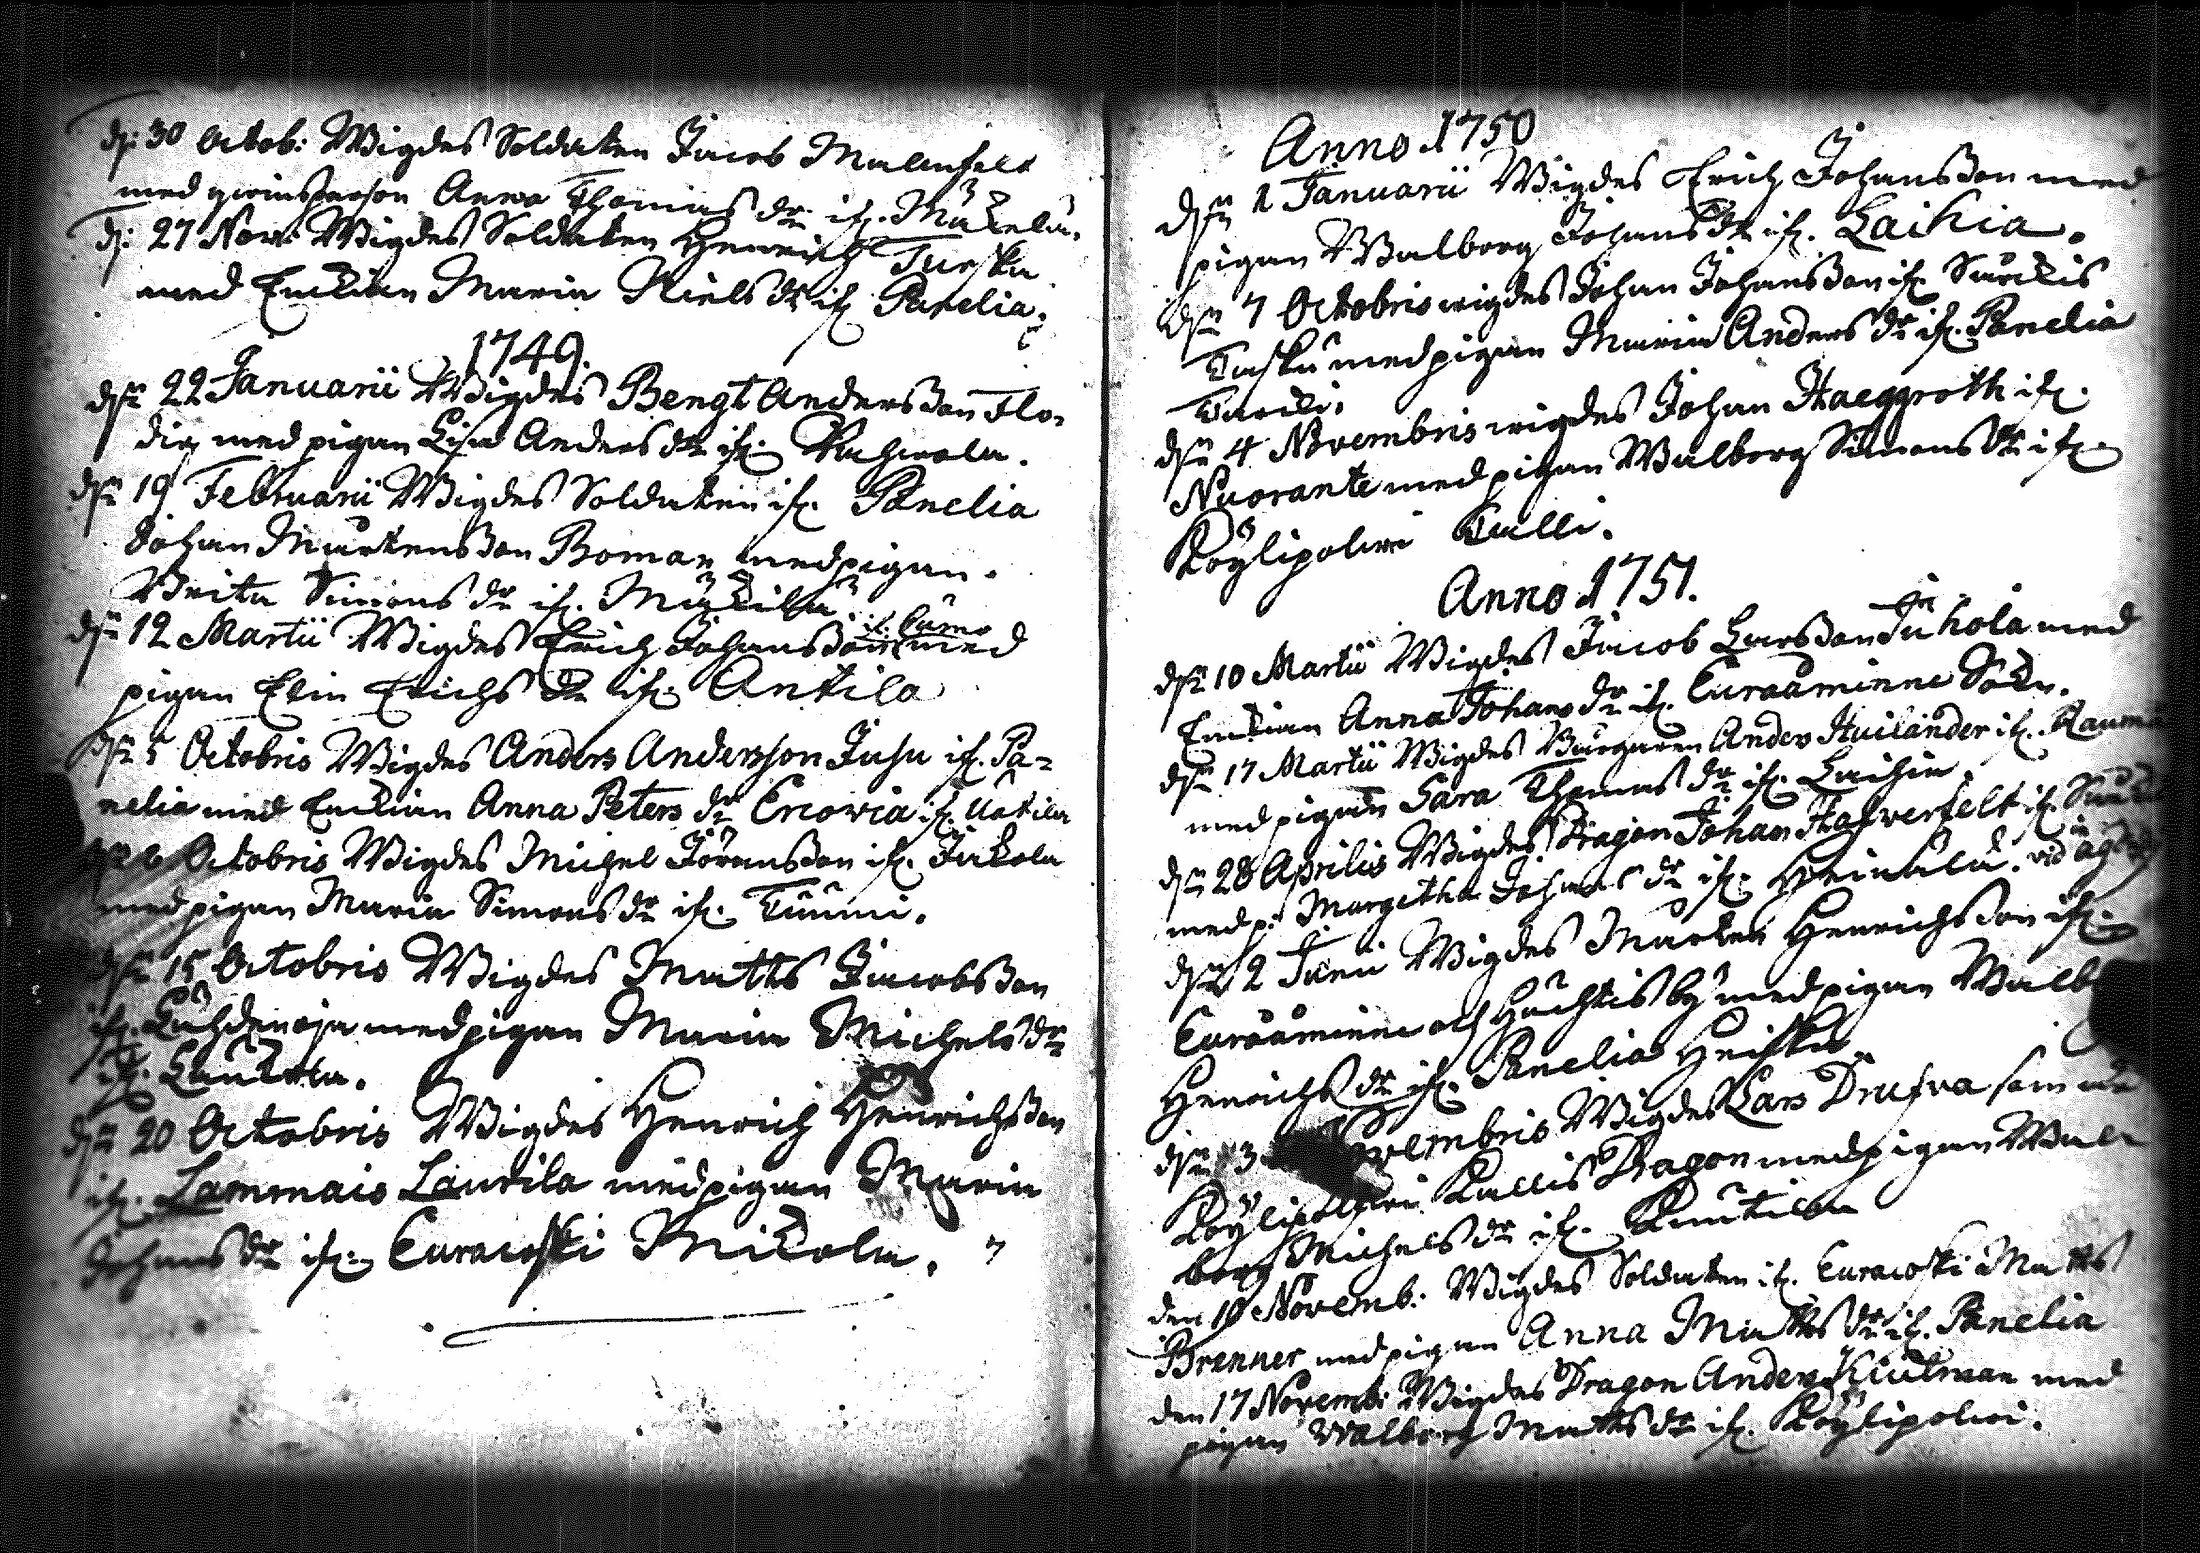 d. 30 Octob: Wigdes Soldaten Jacob Malmfelt
med qwinsperson Anna Thomas dr. if. Mäkelä.
d. 27 Nov: Wigdes Soldaten Henrich Turska
med Enckian Maria Niels dr if Panelia.
1749.
dn 22 Januarii Wigdes Bengt Andersson Flo-
din med pigan Lisa Anders dr if.
dn 19 Februarii Wigdes Soldaten if. Panelia
Johan Mårtensson Boman med pigan
Brita Simons dr if. Mäkilä.
if. Cumo
dn 12 Martii Wigdes Erich Johansson med
pigan Elin Erichs dr if. Antila
dn 5 Octobris Wigdes Anders Andersson Jusu if. Pa-
nelia med Enckian Anna Peters dr Ercowia if. Uotila
Octobris Wigdes Michel Jöransson if. Jukola
med pigan Maria Simons dr if. Tuumi.
dn 15 Octobris Wigdes Matts Jacobsson
if. Lähdenoja med pigan Maria Michels dr
if. Laukola.
dn 20 Octobris Wigdes Henrich Henrichsson
if. Lammais Laurila med pigan Maria
Johans dr if. Euracoski Mikola.
Anno 1750
dn 1 Januarii Wigdes Erich Johansson med
pigan Walborg Johans dr if. Laihia.
dn 7 Octobris wigdes Johan Johansson if Säckis
Tasku med pigan Maria Anders dr if. Panelia
dn 4 Novembris wigdes Johan Haeggroth if.
Nuorante med pigan Walborg Simons dr if
Köylipolwi Kalli.
Anno 1751.
dn 10 Martii Wigdes Jacob Larsson Juhola med
Enckian Anna Johans dr if. Euraåminne Sockn.
dn 17 Martii Wigdes Borgaren Anders Huilander if. Raumo
med pigan Sara Thomas dr if. Laihia
dn 28 Aprilis Wigdes Dragon Johan Hafwerfelt if.
med p. Margetha Johans dr if. Heinilä. wid
dn 2 Junii Wigdes Mårten Henrichsson if.
Euraåminne och Huchtis by med pigan Walb
Henrichs dr if. Panelia Heiska
dn 3 Novembris Wigdes Lars Drufva
Köylipolwi Kallis Dragon med pigan Wal-
borg Michels dr if. Knutila
den 10 Novemb: Wigdes Soldaten if. Euracoski Matts
Brenner med pigan Anna Matts dr if. Panelia
den 17 Novemb: Wigdes Dragon Anders Kiulman med
pigan Walborg Matts dr if. Köylipolwi.